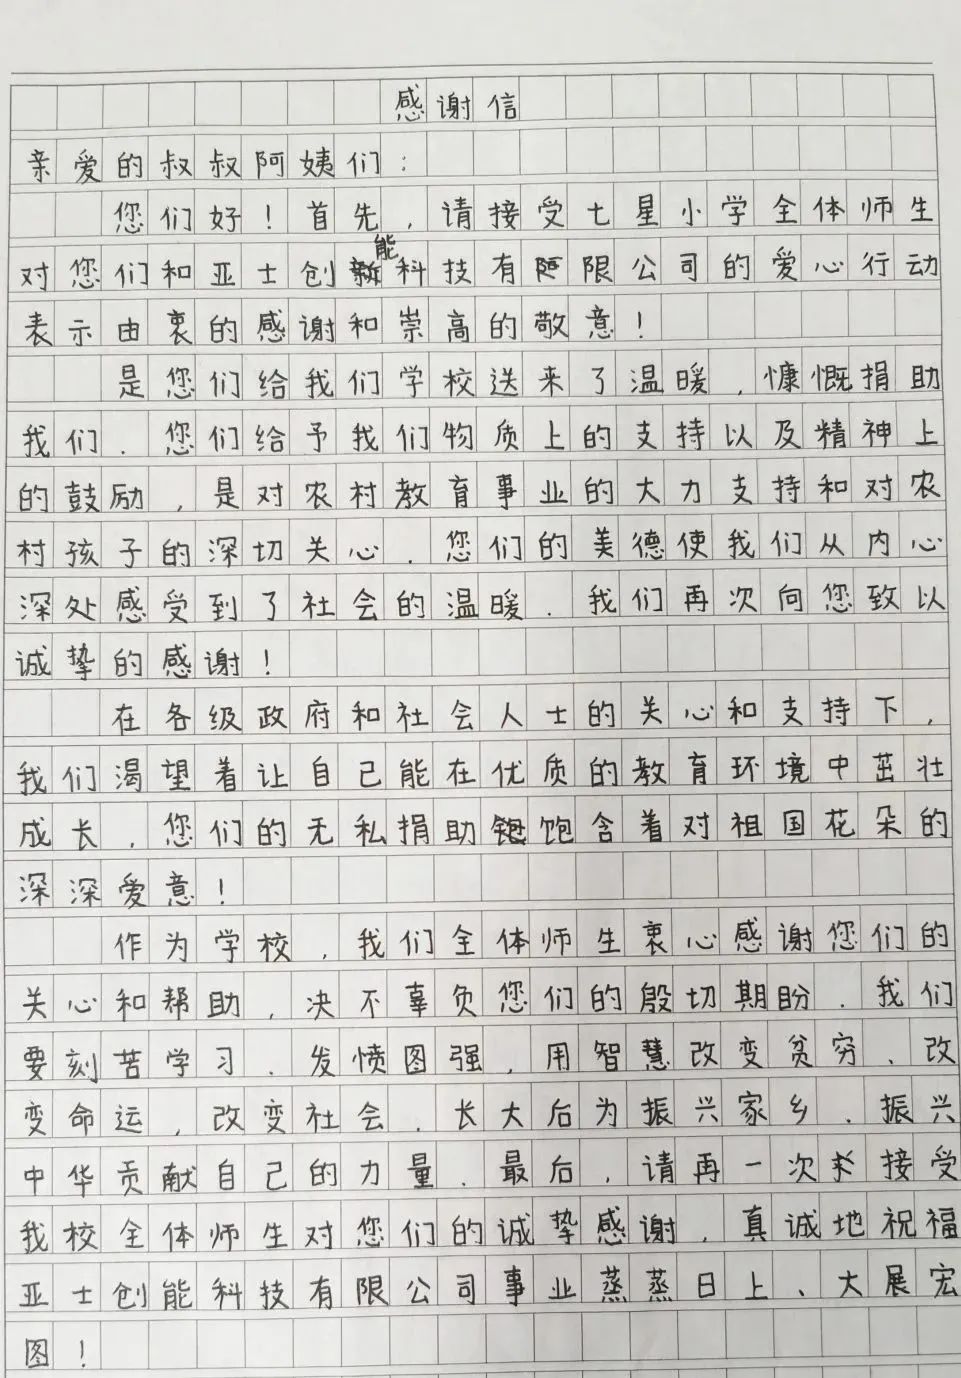 感谢信
亲爱的叔叔阿姨们：
您们好！首先，请接受七星小学全体师生
对您们和亚士创能科技有限公司的爱心行动
表示由衷的感谢和崇高的敬意！
是您们给我们学校送来了温暖，慷慨捐助
我们．您们给予我们物质上的支持以及精神上
的鼓励，是对农村教育事业的大力支持和对农
村孩子的深切关心．您们的美德使我们从内心
深处感受到了社会的温暖．我们再次向您致以
诚挚的感谢！
在各级政府和社会人士的关心和支持下，
我们渴望着让自己能在优质的教育环境中茁壮
成长，您们的无私捐助饱含着对祖国花朵的
深深爱意！
作为学校，我们全体师生衷心感谢您们的
关心和帮助，决不辜负您们的殷切期盼．我们
要刻苦学习、发愤图强，用智慧改变贫穷、改
变命运，改变社会．长大后为振兴家乡．振兴
中华贡献自己的力量．最后，请再一次接受
我校全体师生对您们的诚挚感谢，真诚地祝福
亚士创能科技有限公司事业蒸蒸日上、大展宏
图！